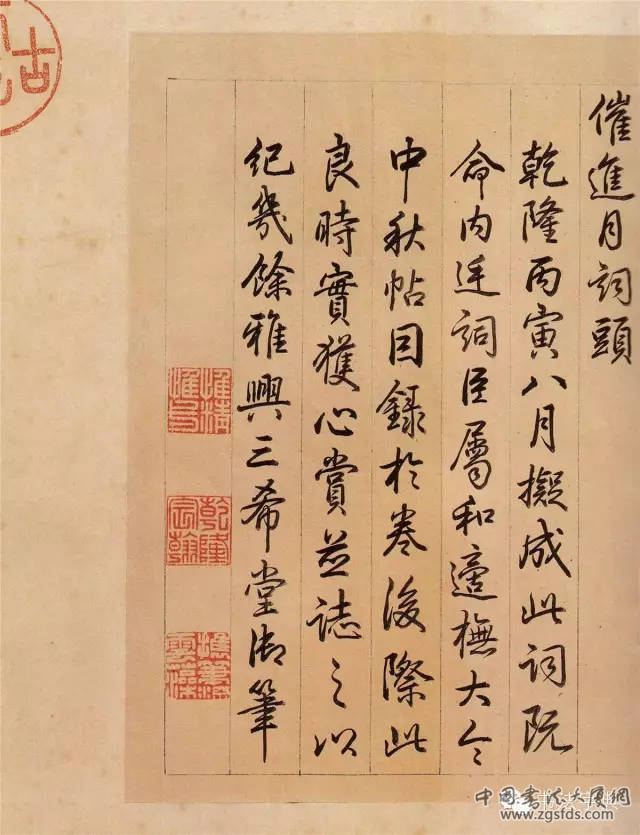 催進月詞頭
乾隆丙寅八月擬成此詞既
命內廷詞臣屬和適橅大令
中秋帖因錄於卷後際此
良時實獲心賞並誌之以
紀幾餘雅興三希堂御筆
乾隆
宸翰
古
中国书法大厦网
www.zgsfds.com